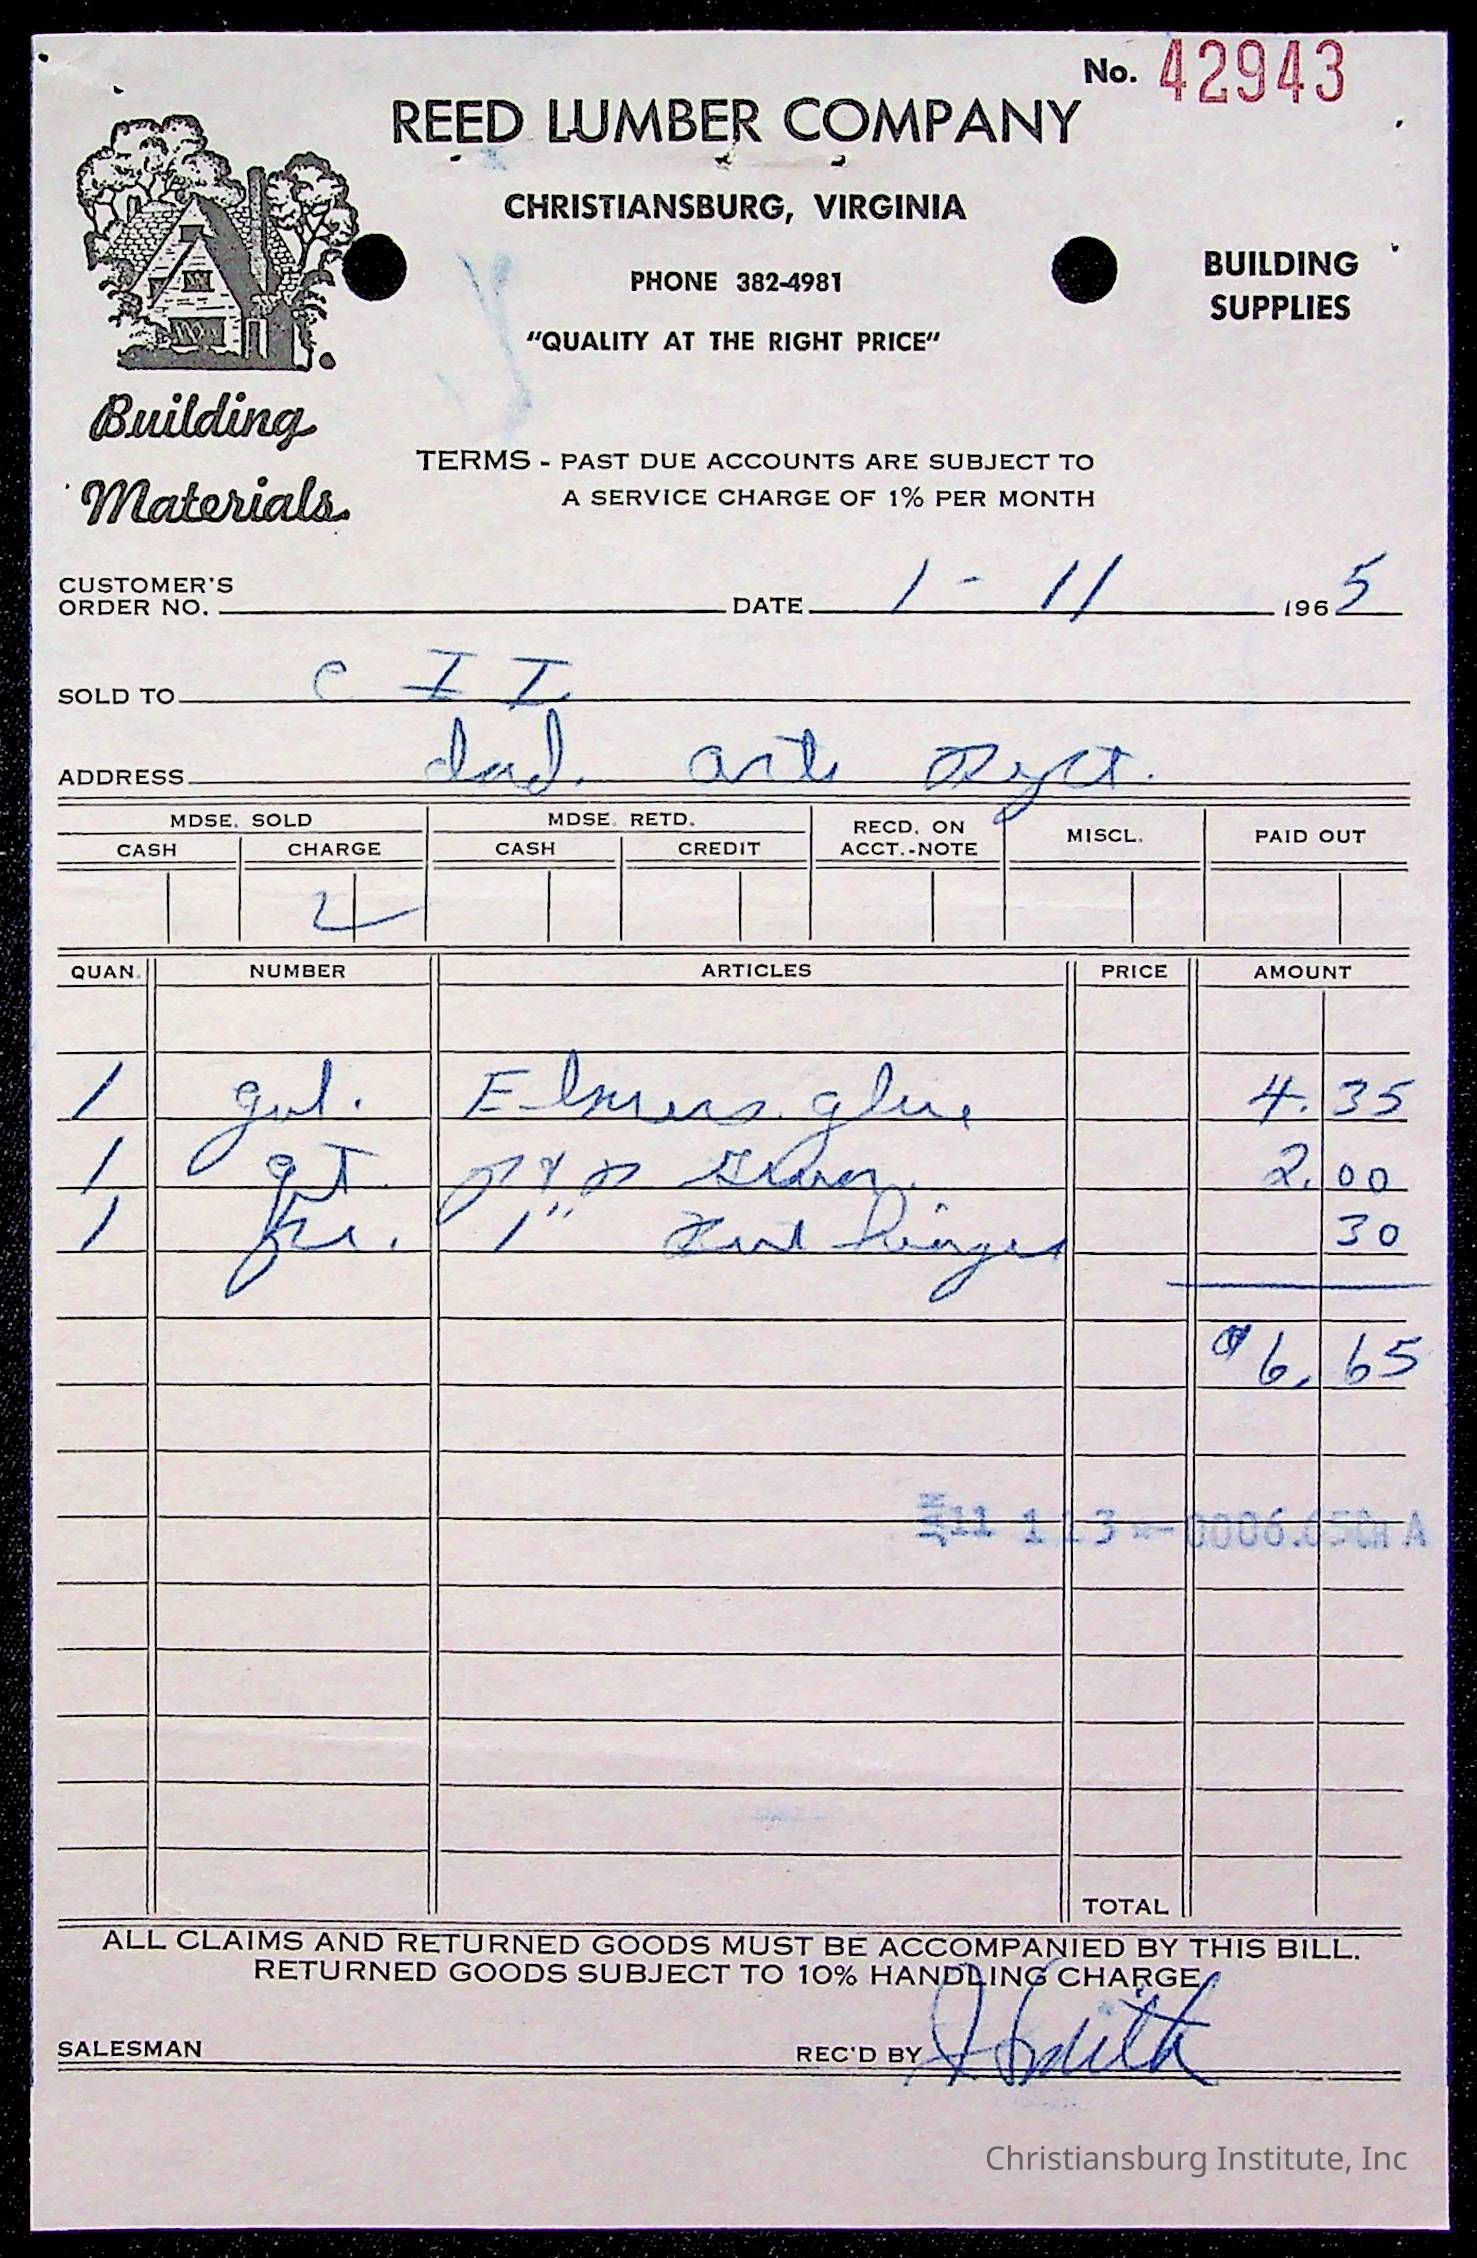 No. 42943
REED LUMBER COMPANY
CHRISTIANSBURG, VIRGINIA
PHONE 382-4981
"QUALITY AT THE RIGHT PRICE"
BUILDING
SUPPLIES
Building
Materials
TERMS - PAST DUE ACCOUNTS ARE SUBJECT TO
A SERVICE CHARGE OF 1% PER MONTH
CUSTOMER'S
ORDER NO. DATE 1 - 11 1965
SOLD TO C I I
ADDRESS Ind. arts
MDSE. SOLD MDSE. RETD. RECD. ON ACCT.-NOTE MISCL. PAID OUT
CASH CHARGE CASH CREDIT
QUAN. NUMBER ARTICLES PRICE AMOUNT
1 gal. Elmers glue 4.35
1 qt. 2.00
1 pr. 1" hinges 30
$6.65
TOTAL
ALL CLAIMS AND RETURNED GOODS MUST BE ACCOMPANIED BY THIS BILL.
RETURNED GOODS SUBJECT TO 10% HANDLING CHARGE
SALESMAN REC'D BY Smith
Christiansburg Institute, Inc